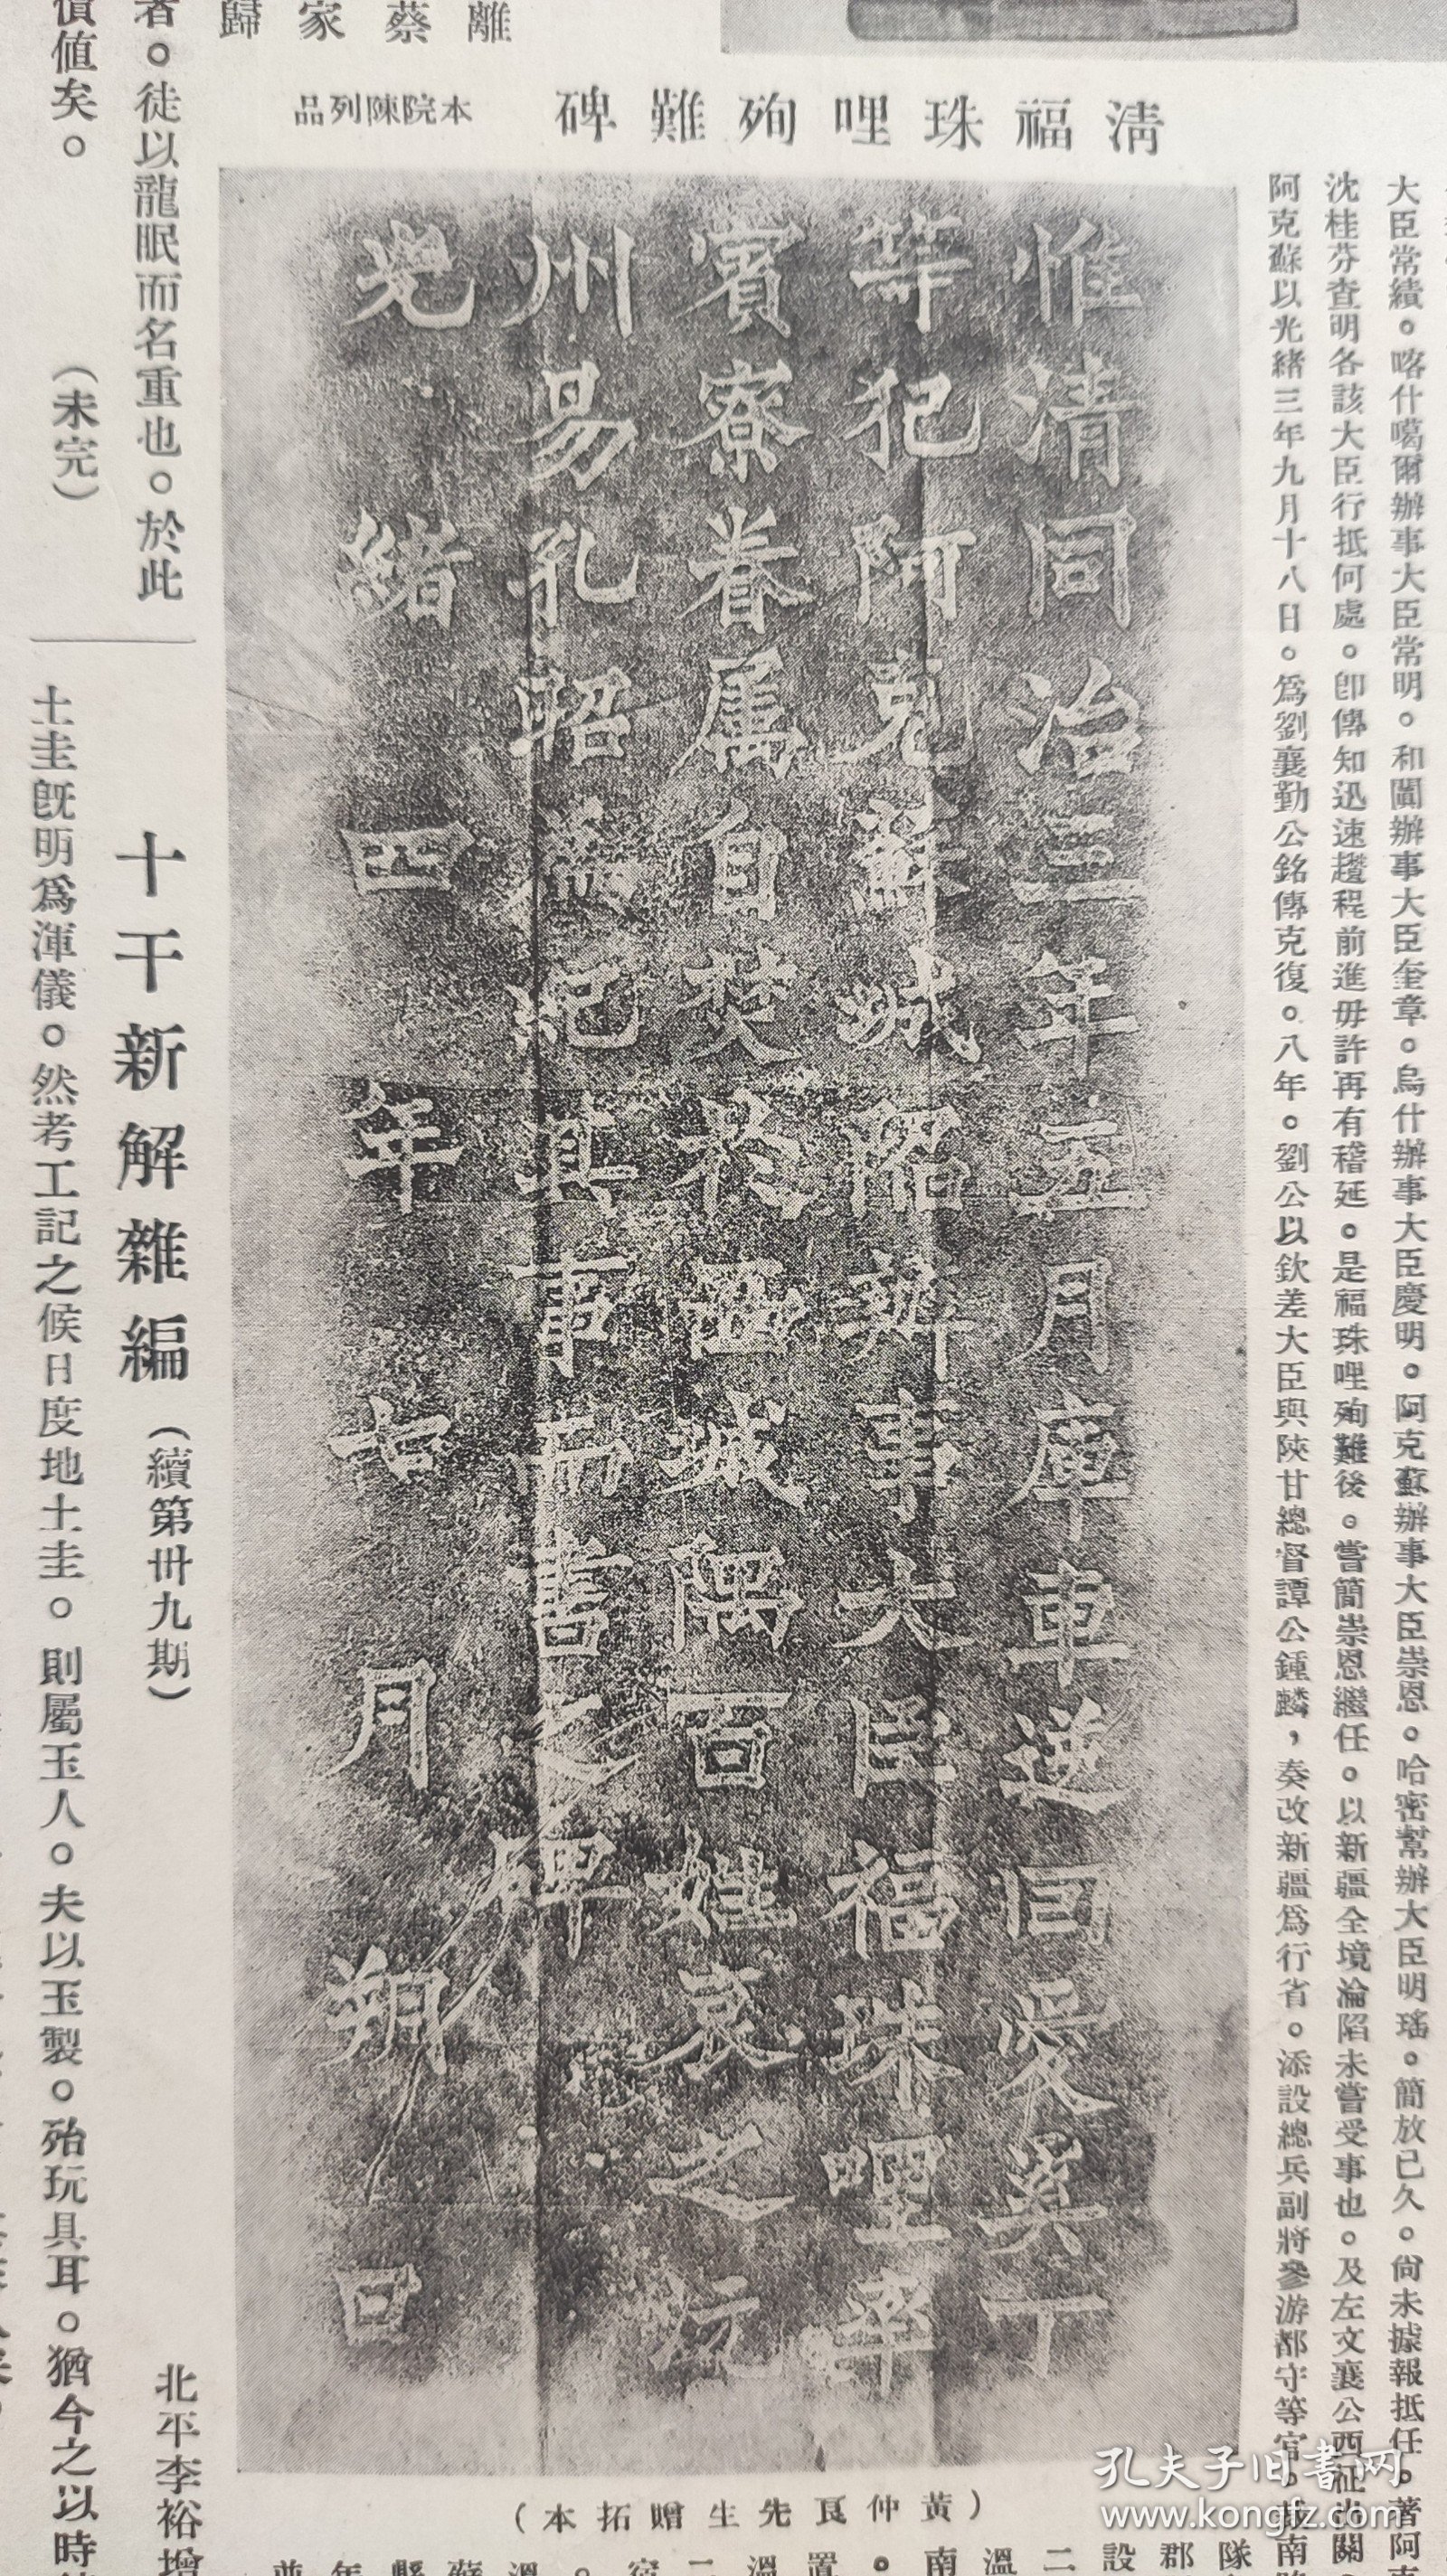 離蔡家歸
清福珠哩殉難碑　本院陳列品
大臣常績。喀什噶爾辦事大臣常明。和闐辦事大臣奎章。烏什辦事大臣慶明。阿克蘇辦事大臣崇恩。哈密幫辦大臣明瑤。簡放已久。尚未據報抵任。著阿
沈桂芬查明各該大臣行抵何處。卽傳知迅速趲程前進毋許再有稽延。是福珠哩殉難後。嘗簡崇恩繼任。以新疆全境淪陷未嘗受事也。及左文襄公西征出關
阿克蘇以光緒三年九月十八日。爲劉襄勤公銘傳克復。八年。劉公以欽差大臣與陝甘總督譚公鍾麟，奏改新疆爲行省。添設總兵副將參游都守等官。
惟清同治三年五月庫車逆回愛吳丁
等犯阿克蘇城陷辦事大臣福珠哩率
賓寮眷屬自焚於西城隅百姓哀之
州易孔昭爲紀其事而書之碑
光緒四年七月朔日
（黃仲良先生贈拓本）
隊郡設二溫南。置溫二宿。溫蘇縣年並
者。徒以龍眠而名重也。於此
價值矣。　（未完）
十干新解雜編（續第卅九期）
北平李裕增
土圭旣明爲渾儀。然考工記之候日度地土圭。則屬玉人。夫以玉製。殆玩具耳。猶今之以時
孔夫子旧书网
www.kongfz.com